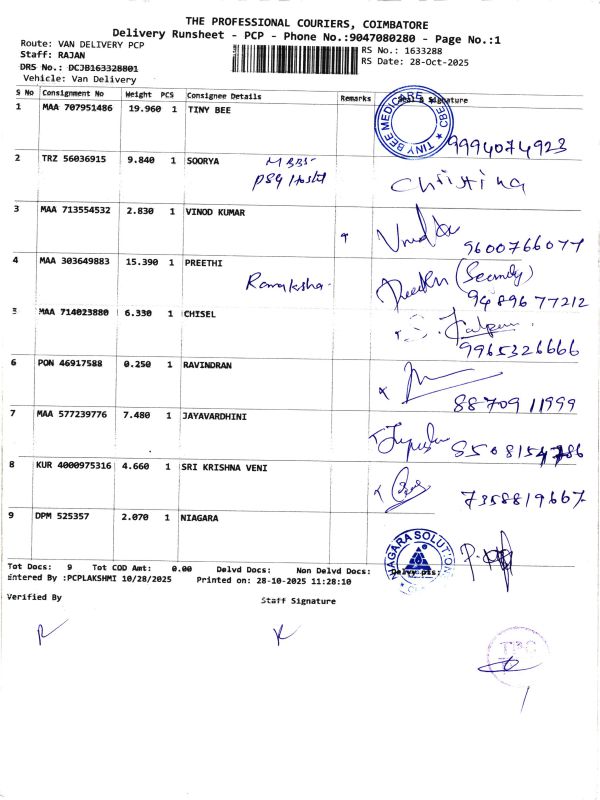 THE PROFESSIONAL COURIERS, COIMBATORE
Delivery Runsheet - PCP - Phone No.:9047080280 - Page No.:1
Route: VAN DELIVERY PCP
Staff: RAJAN
DRS No.: DCJB163328801
Vehicle: Van Delivery
RS No.: 1633288
RS Date: 28-Oct-2025
S No Consignment No Weight PCS Consignee Details Remarks Seal & Signature
1 MAA 707951486 19.960 1 TINY BEE
TINY BEE MEDICARE CBE
9994074923
2 TRZ 56036915 9.840 1 SOORYA MBBS
PSG Hostel
Christina
3 MAA 713554532 2.830 1 VINOD KUMAR
9600766077
4 MAA 303649883 15.390 1 PREETHI
Ramaksha
Preethi (Security)
9489677212
5 MAA 714023880 6.330 1 CHISEL
9965326666
6 PON 46917588 0.250 1 RAVINDRAN
8870911999
7 MAA 577239776 7.480 1 JAYAVARDHINI
8508154786
8 KUR 4000975316 4.660 1 SRI KRISHNA VENI
7358819667
9 DPM 525357 2.070 1 NIAGARA
NIAGARA SOLUTION
Tot Docs: 9 Tot COD Amt: 0.00 Delvd Docs: Non Delvd Docs: Delvy pts:
Entered By :PCPLAKSHMI 10/28/2025 Printed on: 28-10-2025 11:28:10
Verified By
Staff Signature